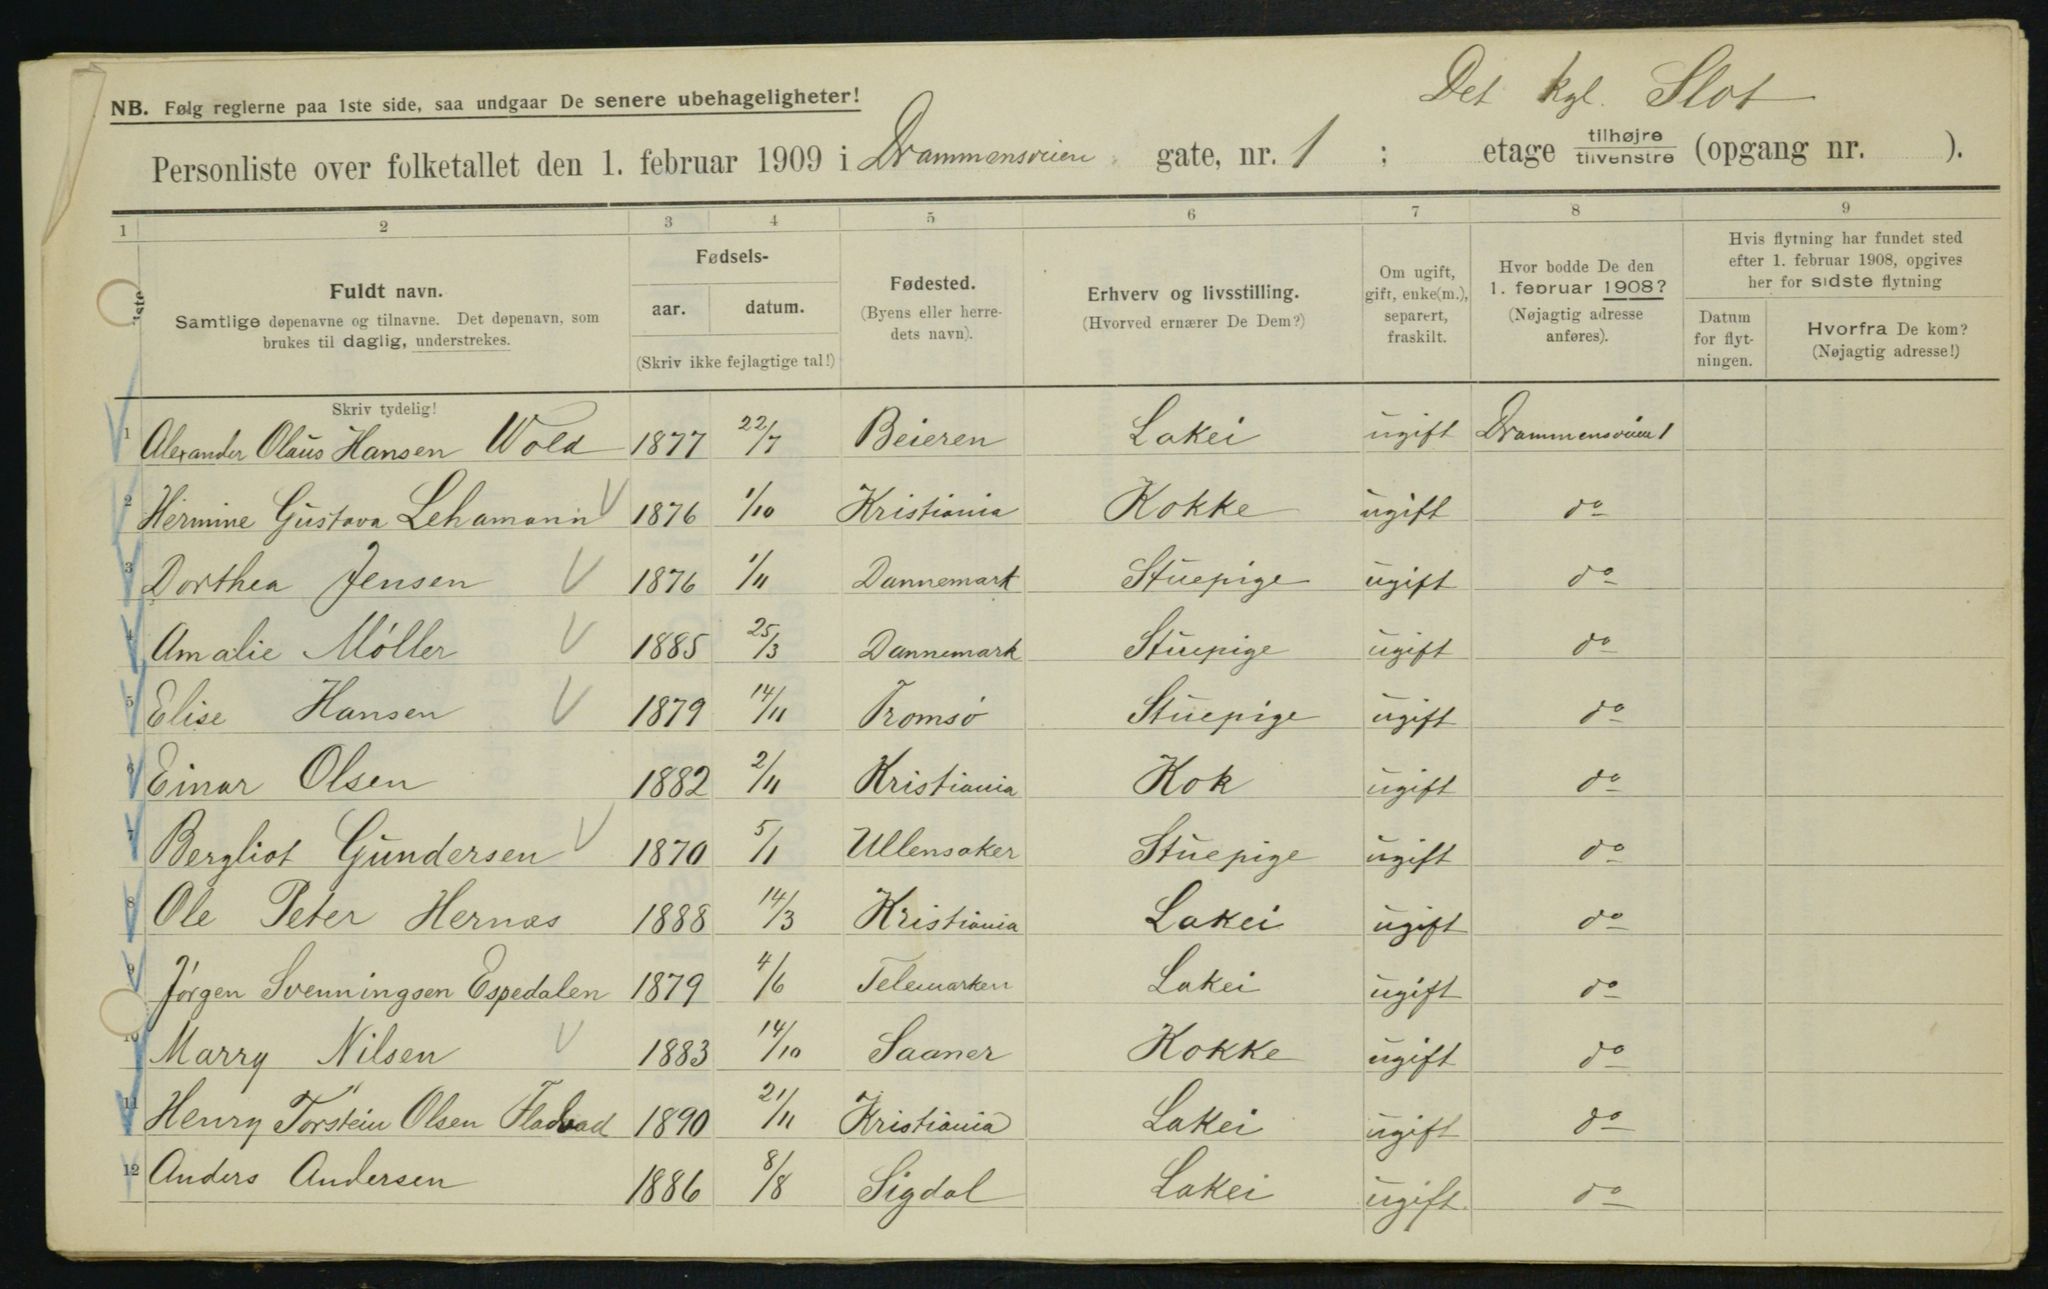 Det kgl. Slot
NB. Følg reglerne paa 1ste side, saa undgaar De senere ubehageligheter!
Personliste over folketallet den 1. februar 1909 i Drammensveien gate, nr. 1 ; etage tilhøjre tilvenstre (opgang nr. ).
1 2 3 4 5 6 7 8 9
Fuldt navn.
Samtlige døpenavne og tilnavne. Det døpenavn, som
brukes til daglig, understrekes.
Skriv tydelig!
Fødsels-
aar. datum.
(Skriv ikke fejlagtige tal!)
Fødested.
(Byens eller herre-
dets navn).
Erhverv og livsstilling.
(Hvorved ernærer De Dem?)
Om ugift,
gift, enke(m.),
separert,
fraskilt.
Hvor bodde De den
1. februar 1908?
(Nøjagtig adresse
anføres).
Hvis flytning har fundet sted
efter 1. februar 1908, opgives
her for sidste flytning
Datum
for flyt-
ningen.
Hvorfra De kom?
(Nøjagtig adresse!)
1 Alexander Olaus Hansen Wold 1877 22/7 Beieren Lakei ugift Drammensveien 1
2 Hermine Gustava Lehamann 1876 1/10 Kristiania Kokke ugift do
3 Dorthea Jensen 1876 1/11 Dannemark Stuepige ugift do
4 Amalie Møller 1885 25/3 Dannemark Stuepige ugift do
5 Elise Hansen 1879 14/11 Tromsø Stuepige ugift do
6 Einar Olsen 1882 2/11 Kristiania Kok ugift do
7 Bergliot Gundersen 1870 5/1 Ullensaker Stuepige ugift do
8 Ole Peter Hernæs 1888 14/3 Kristiania Lakei ugift do
9 Jørgen Svenningsen Espedalen 1879 4/6 Telemarken Lakei ugift do
10 Marry Nilsen 1883 14/10 Saaner Kokke ugift do
11 Henry Torstein Olsen Fladvad 1890 21/11 Kristiania Lakei ugift do
12 Anders Andersen 1886 8/8 Sigdal Lakei ugift do